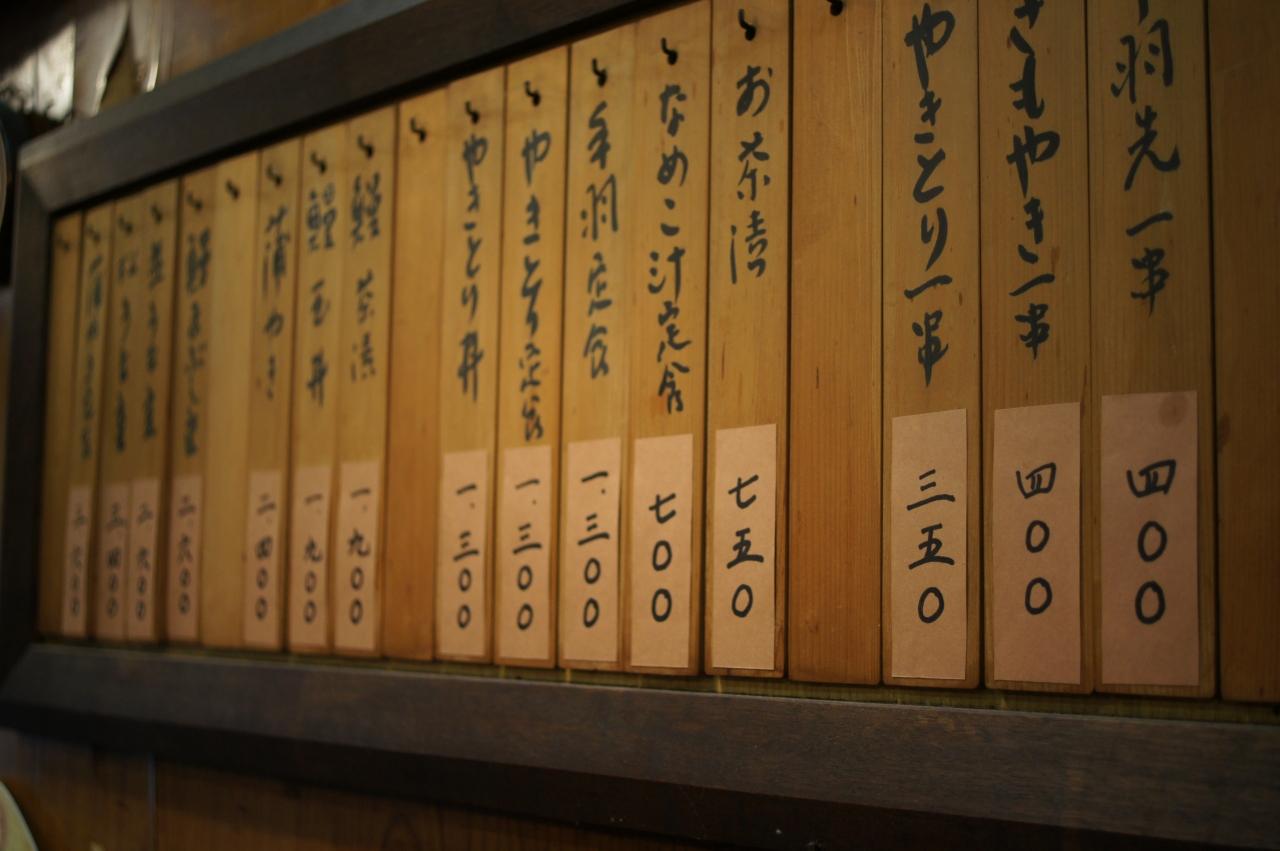 羽先一串
四〇〇
きもやき一串
四〇〇
やきとり一串
三五〇
お茶漬
七五〇
なめこ汁定食
七〇〇
手羽定食
一.三〇〇
やきとり定食
一.三〇〇
やきとり丼
一.三〇〇
鰻茶漬
一.九〇〇
鰻玉丼
一.九〇〇
蒲やき
二.四〇〇
二.六〇〇